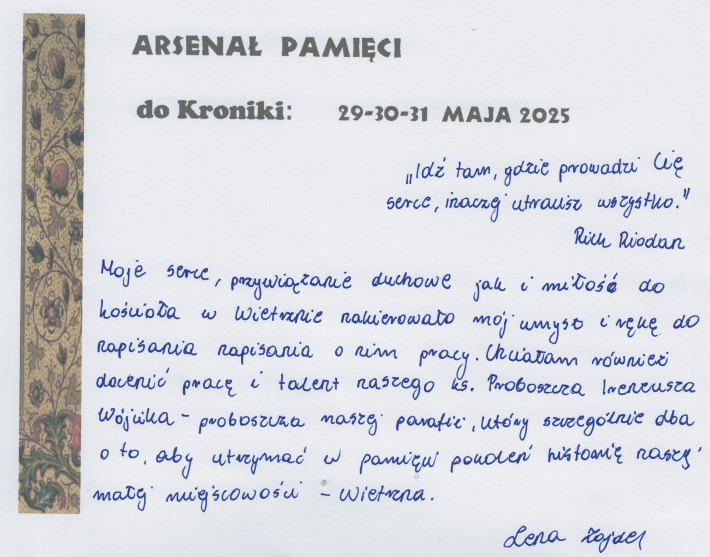 ARSENAŁ PAMIĘCI
do Kroniki: 29-30-31 MAJA 2025
„Idź tam, gdzie prowadzi Cię
serce, inaczej utracisz wszystko."
Rick Riodan
Moje serce, przywiązanie duchowe jak i miłość do
kościoła w Wietrznie nakierowało mój umysł i rękę do
napisania napisania o nim pracy. Chciałam również
docenić pracę i talent naszego ks. Proboszcza Ireneusza
Wójcika - proboszcza naszej parafii, który szczególnie dba
o to, aby utrzymać w pamięci pokoleń historię naszej
małej miejscowości - Wietrzna.
Lena Zajdel